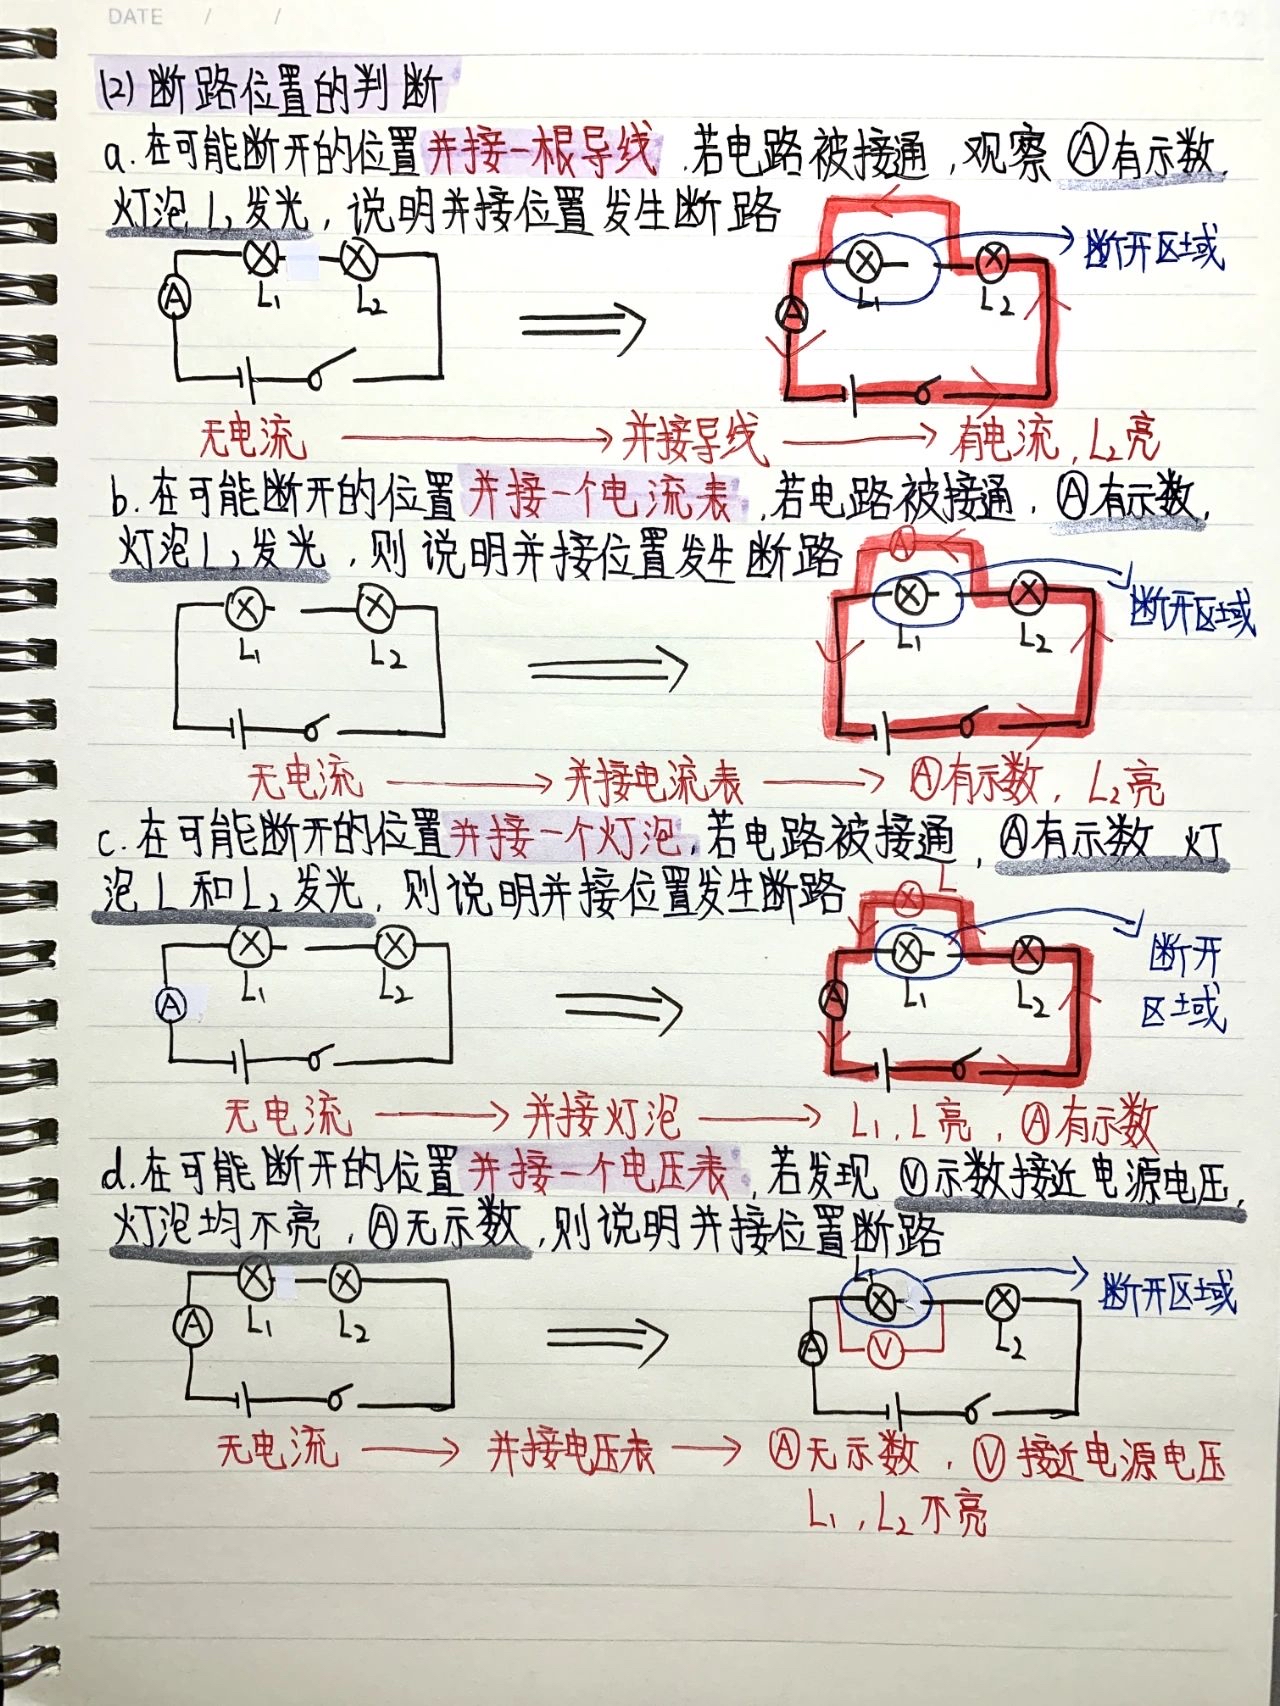 DATE / /
(2) 断路位置的判断
a. 在可能断开的位置并接一根导线，若电路被接通，观察Ⓐ有示数，
灯泡L₂发光，说明并接位置发生断路
断开区域
L₁ L₂ A
L₁ L₂ A
无电流 → 并接导线 → 有电流，L₂亮
b. 在可能断开的位置并接一个电流表，若电路被接通，Ⓐ有示数，
灯泡L₂发光，则说明并接位置发生断路
A
断开区域
L₁ L₂
L₁ L₂
无电流 → 并接电流表 → Ⓐ有示数，L₂亮
c. 在可能断开的位置并接一个灯泡，若电路被接通，Ⓐ有示数 灯
泡L和L₂发光，则说明并接位置发生断路
L
断开
区域
A L₁ L₂
A L₁ L₂
无电流 → 并接灯泡 → L₁，L亮，Ⓐ有示数
d. 在可能断开的位置并接一个电压表，若发现Ⓥ示数接近电源电压，
灯泡均不亮，Ⓐ无示数，则说明并接位置断路
断开区域
A L₁ L₂
L A V L₂
无电流 → 并接电压表 → Ⓐ无示数，Ⓥ接近电源电压
L₁，L₂不亮